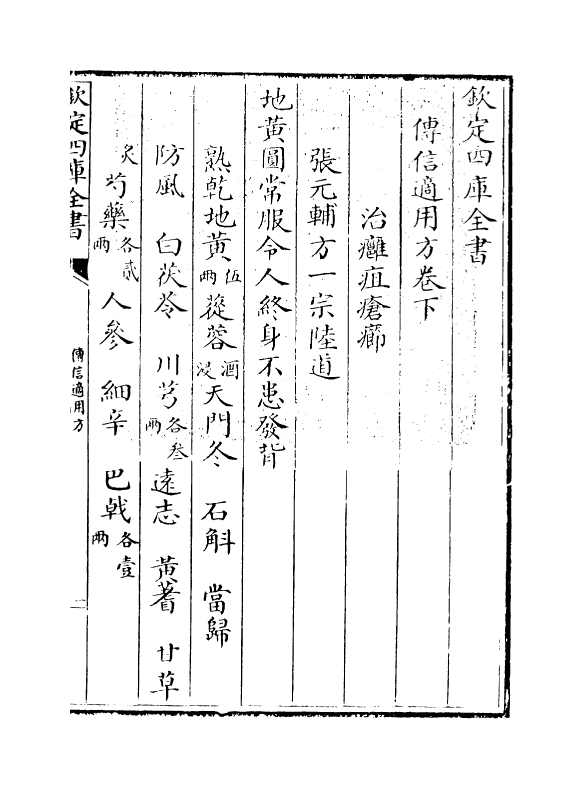 欽定四庫全書
傳信適用方卷下
治癰疽瘡癤
張元輔方一宗陸道
地黄圓常服令人終身不患發背
熟乾地黄伍兩 蓯蓉酒浸 天門冬 石斛 當歸
防風 白茯苓 川芎各叁兩 遠志 黄蓍 甘草
炙 芍藥各貳兩 人參 細辛 巴戟各壹兩
欽定四庫全書
傳信適用方